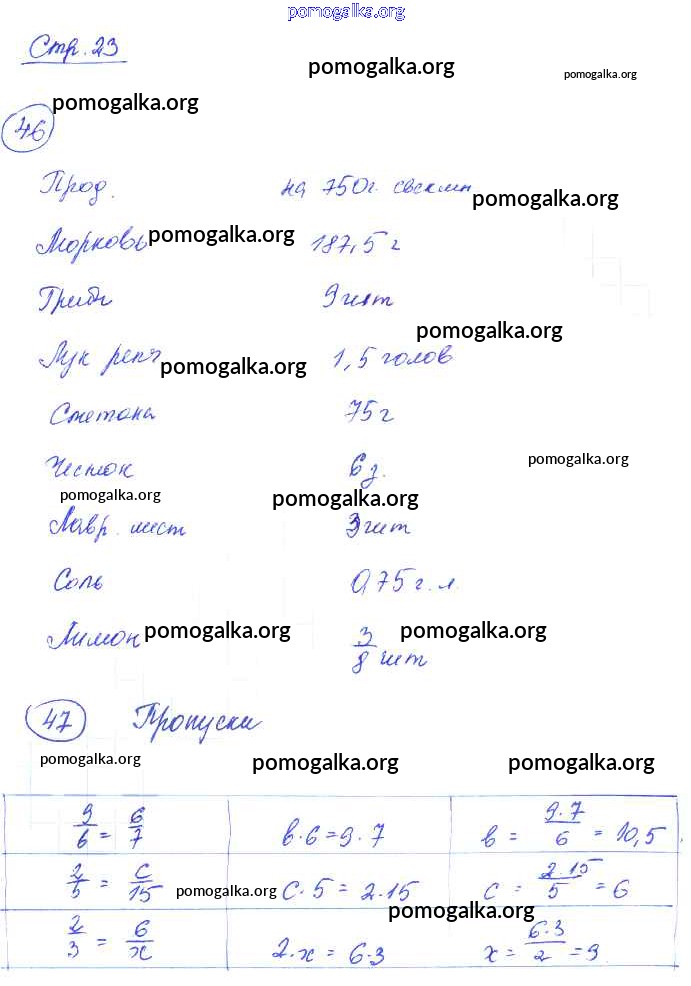 pomogalka.org
Стр. 23
pomogalka.org
pomogalka.org
pomogalka.org
46
Прод. на 750г. свеклы
pomogalka.org
Морковь 187,5 г
pomogalka.org
Грибы 9 шт
pomogalka.org
Лук репч 1,5 голов
pomogalka.org
Сметана 75 г
Чеснок 6 д.
pomogalka.org
pomogalka.org
pomogalka.org
Лавр. лист 3 шт
Соль 0,75 г. л.
Лимон 3/8 шт
pomogalka.org
pomogalka.org
47 Пропуски
pomogalka.org
pomogalka.org
pomogalka.org
9/6 = 6/7 в·6=9·7 в = 9·7/6 = 10,5
2/5 = с/15 с·5=2·15 с = 2·15/5 = 6
pomogalka.org
pomogalka.org
2/3 = 6/x 2·x = 6·3 x = 6·3/2 = 9